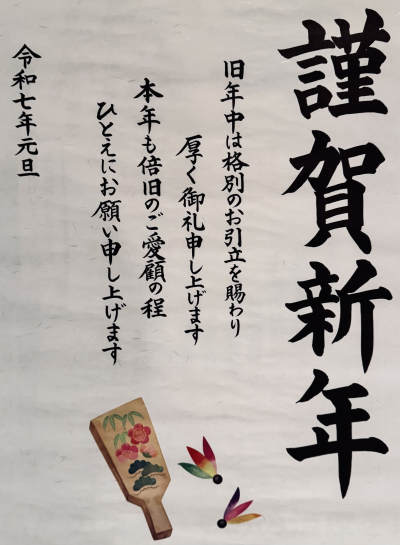 謹賀新年
旧年中は格別のお引立を賜わり
厚く御礼申し上げます
本年も倍旧のご愛顧の程
ひとえにお願い申し上げます
令和七年元旦